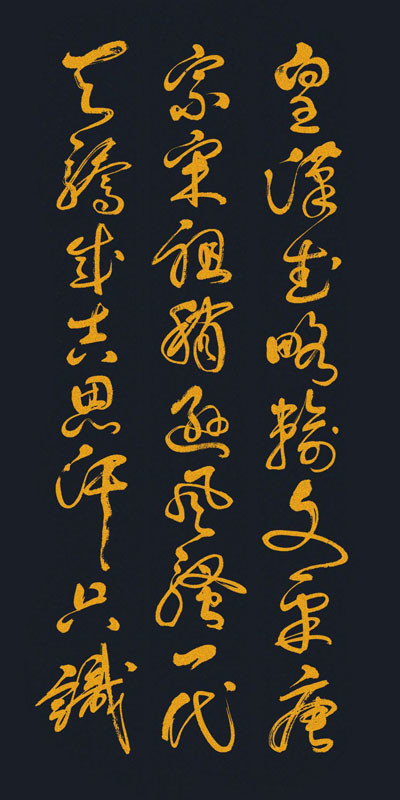 皇漢武略輸文采唐
宗宋祖稍遜風騷一代
天驕成吉思汗只識